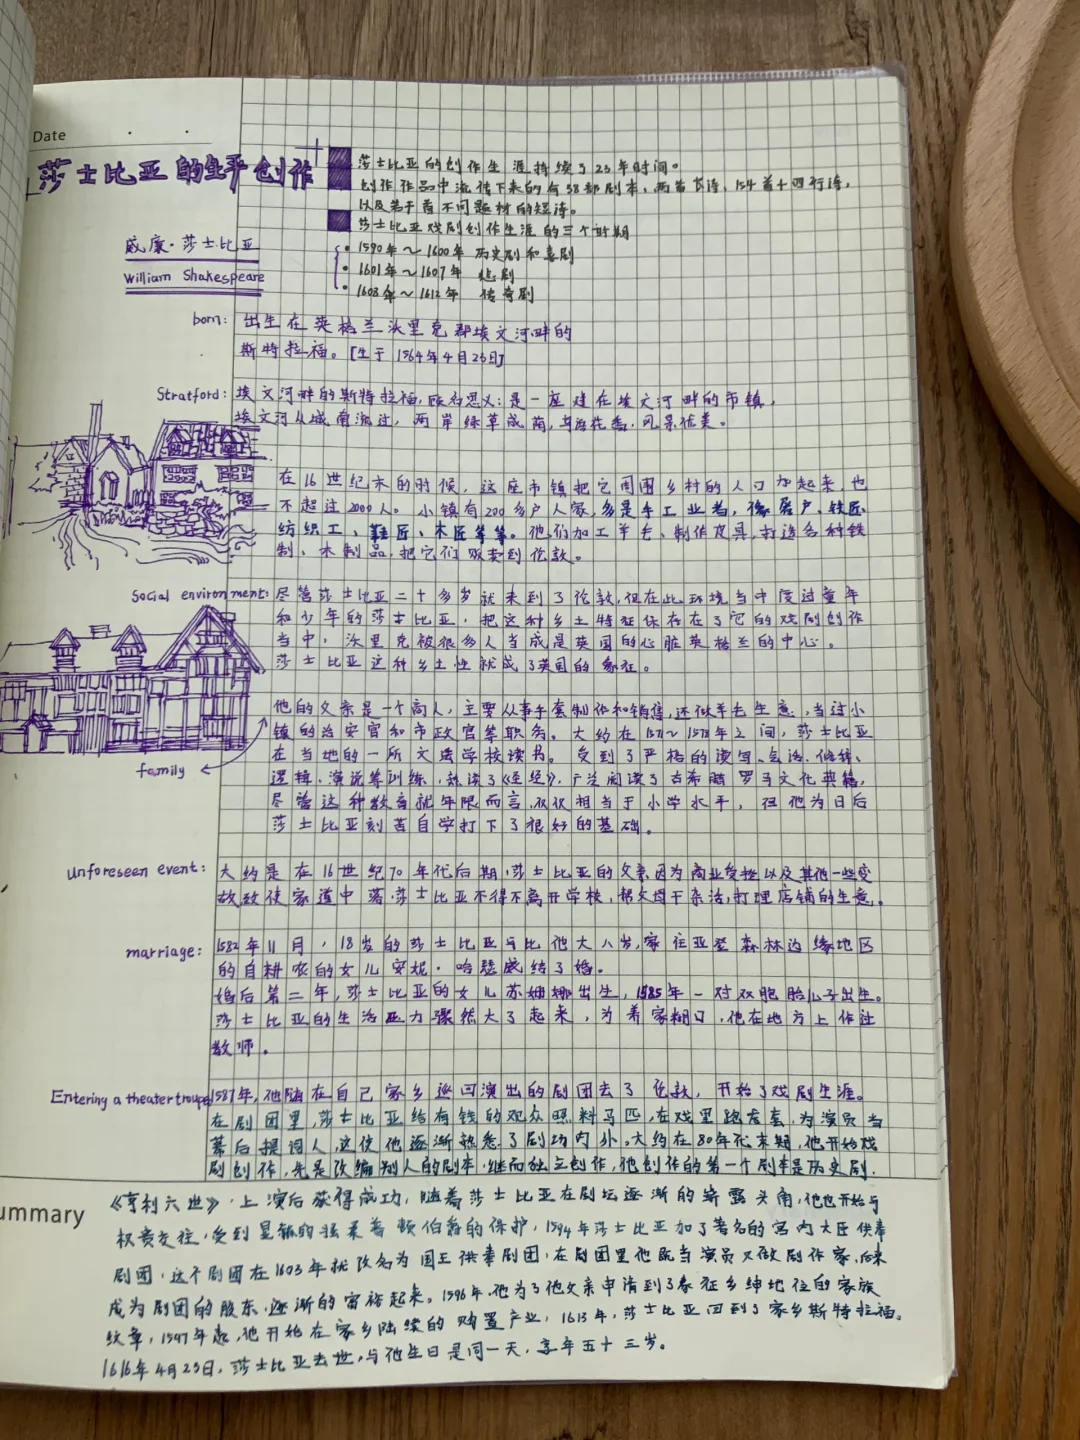 Date
莎士比亚的生平创作
莎士比亚的创作生涯持续了23年时间。
创作作品中流传下来的有38部剧本,两首长诗,154首十四行诗,
以及若干首不同题材的短诗。
莎士比亚戏剧创作生涯的三个时期
1590年~1600年 历史剧和喜剧
1601年~1607年 悲剧
1608年~1612年 传奇剧
威廉·莎士比亚
William Shakespeare
born: 出生在英格兰沃里克郡埃文河畔的
斯特拉福。[生于1564年4月23日]
Stratford: 埃文河畔的斯特拉福,顾名思义:是一座建在埃文河畔的市镇,
埃文河从城南流过,两岸绿草成荫,鸟语花香,风景优美。
在16世纪末的时候,这座市镇把它周围乡村的人口加起来,也
不超过2000人。小镇有200多户人家,多是手工业者,像农户、铁匠、
纺织工、鞋匠、木匠等等。他们加工羊毛、制作皮具,打造各种铁
制、木制品,把它们贩卖到伦敦。
Social environment: 尽管莎士比亚二十多岁就来到了伦敦,但在此环境当中度过童年
和少年的莎士比亚,把这种乡土特征保存在了它的戏剧创作
当中,沃里克被很多人当成是英国的心脏英格兰的中心。
莎士比亚这种乡土性就成了英国的象征。
他的父亲是一个商人,主要从事手套制作和销售,还做羊毛生意,当过小
镇的治安官和市政官等职务。大约在1571~1578年之间,莎士比亚
在当地的一所文法学校读书。受到了严格的读写、会话、修辞、
逻辑、演说等训练,熟读了《圣经》,广泛阅读了古希腊罗马文化典籍,
尽管这种教育就年限而言,仅仅相当于小学水平,但他为日后
莎士比亚刻苦自学打下了很好的基础。
family
Unforeseen event: 大约是在16世纪70年代后期,莎士比亚的父亲因为商业受挫以及其他一些变
故致使家道中落,莎士比亚不得不离开学校,帮父母干杂活,打理店铺的生意。
marriage: 1582年11月,18岁的莎士比亚与比他大八岁,家住亚登森林边缘地区
的自耕农的女儿安妮·哈瑟威结了婚。
婚后第二年,莎士比亚的女儿苏姗娜出生,1585年一对双胞胎儿子出生。
莎士比亚的生活压力骤然大了起来,为养家糊口,他在地方上作过
教师。
Entering a theater troupe 1587年,他随在自己家乡巡回演出的剧团去了伦敦,开始了戏剧生涯。
在剧团里,莎士比亚给有钱的观众照料马匹,在戏里跑龙套,为演员当
幕后提词人,这使他逐渐熟悉了剧场内外。大约在80年代末期,他开始戏
剧创作,先是改编别人的剧本,继而独立创作,他创作的第一个剧本是历史剧.
ummary
《亨利六世》,上演后获得成功,随着莎士比亚在剧坛逐渐的崭露头角,他也开始与
权贵交往,受到显赫的扫桑普顿伯爵的保护,1594年莎士比亚加了著名的宫内大臣供奉
剧团,这个剧团在1603年就改名为国王供奉剧团,在剧团里他既当演员又做剧作家,后来
成为剧团的股东,逐渐的富裕起来。1596年,他为了他父亲申请到了象征乡绅地位的家族
纹章,1597年起,他开始在家乡陆续的购置产业,1613年,莎士比亚回到了家乡斯特拉福。
1616年4月23日,莎士比亚去世,与他生日是同一天,享年五十三岁。